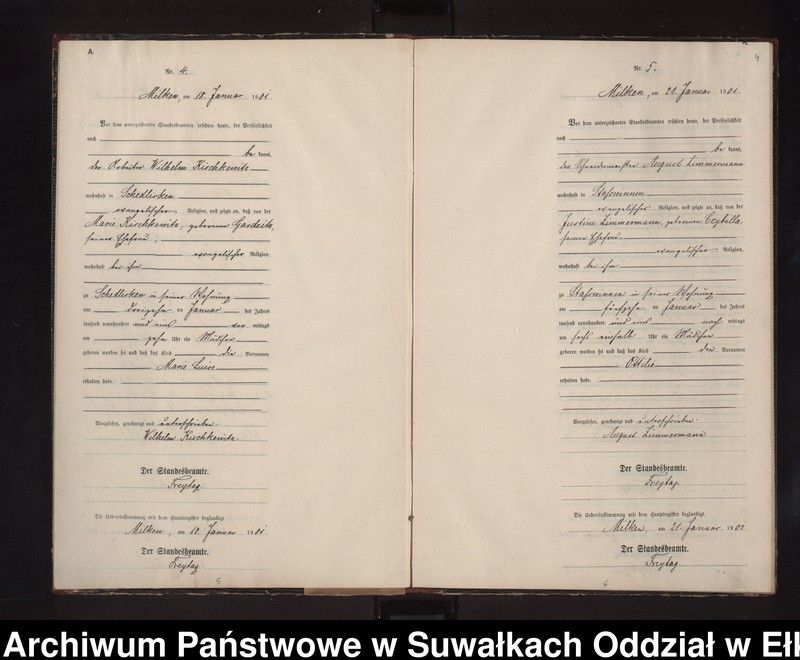 A.
Nr. 4.
Milken, am 18. Januar 1901
Vor dem unterzeichneten Standesbeamten erschien heute, der Persönlichkeit
nach
be kannt,
der Arbeiter Wilhelm Kirchkewitz
wohnhaft in Schedlisken
evangelischer Religion, und zeigte an, daß von der
Marie Kirchkewitz, geborenen
seiner Ehefrau,
evangelischer Religion,
wohnhaft bei ihm
zu Schedlisken in seiner Wohnung
am dreizehn ten Januar des Jahres
tausend neunhundert und eins vor mittags
um zehn Uhr ein Mädchen
geboren worden sei und daß das Kind die Vornamen
Marie Luise
erhalten habe.
Vorgelesen, genehmigt und unterschrieben.
Wilhelm Kirchkewitz.
Der Standesbeamte.
Freytag.
Die Uebereinstimmung mit dem Hauptregister beglaubigt.
Milken, am 18. Januar 1901.
Der Standesbeamte.
Freytag
5
4
Nr. 5.
Milken, am 21. Januar 1901
Vor dem unterzeichneten Standesbeamten erschien heute, der Persönlichkeit
nach
be kannt,
der Schneidermeister August Zimmermann
wohnhaft in Staßwinnen
evangelischer Religion, und zeigte an, daß von der
Justine Zimmermann, geborenen Czybulla,
seiner Ehefrau,
evangelischer Religion,
wohnhaft bei ihm
zu Staßwinnen in seiner Wohnung
am fünfzehn ten Januar des Jahres
tausend neunhundert und eins nach mittags
um sechs einhalb Uhr ein Mädchen
geboren worden sei und daß das Kind den Vornamen
Ottilie
erhalten habe.
Vorgelesen, genehmigt und unterschrieben.
August Zimmermann
Der Standesbeamte.
Freytag.
Die Uebereinstimmung mit dem Hauptregister beglaubigt.
Milken, am 21. Januar 1901
Der Standesbeamte.
Freytag
6
Archiwum Państwowe w Suwałkach Oddział w Ełk